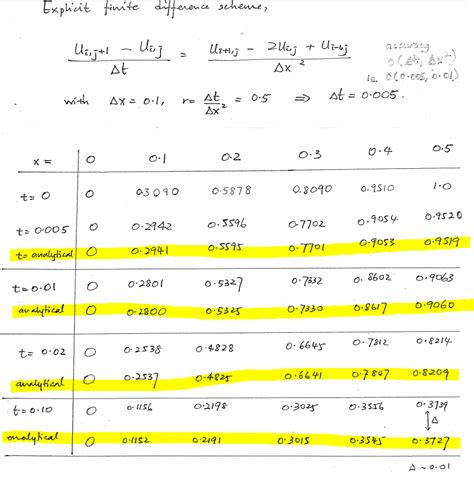 Explicit finite difference scheme,
Ui,j+1 - Ui,j / Δt = Ui+1,j - 2Ui,j + Ui-1,j / Δx²
accuracy
O(Δt, Δx²)
ie. O(0.005, 0.01)
with Δx = 0.1, r = Δt/Δx² = 0.5 ⇒ Δt = 0.005.
x = 0 0.1 0.2 0.3 0.4 0.5
t= 0 0 0.3090 0.5878 0.8090 0.9510 1.0
t= 0.005 0 0.2942 0.5596 0.7702 0.9054 0.9520
t= analytical 0 0.2941 0.5595 0.7701 0.9053 0.9519
t= 0.01 0 0.2801 0.5327 0.7332 0.8602 0.9063
analytical 0 0.2800 0.5325 0.7330 0.8617 0.9060
t= 0.02 0 0.2538 0.4828 0.6645 0.7812 0.8214
analytical 0 0.2537 0.4825 0.6641 0.7807 0.8209
t= 0.10 0 0.1156 0.2198 0.3025 0.3556 0.3739
Δ
analytical 0 0.1152 0.2191 0.3015 0.3545 0.3727
Δ ~ 0.01